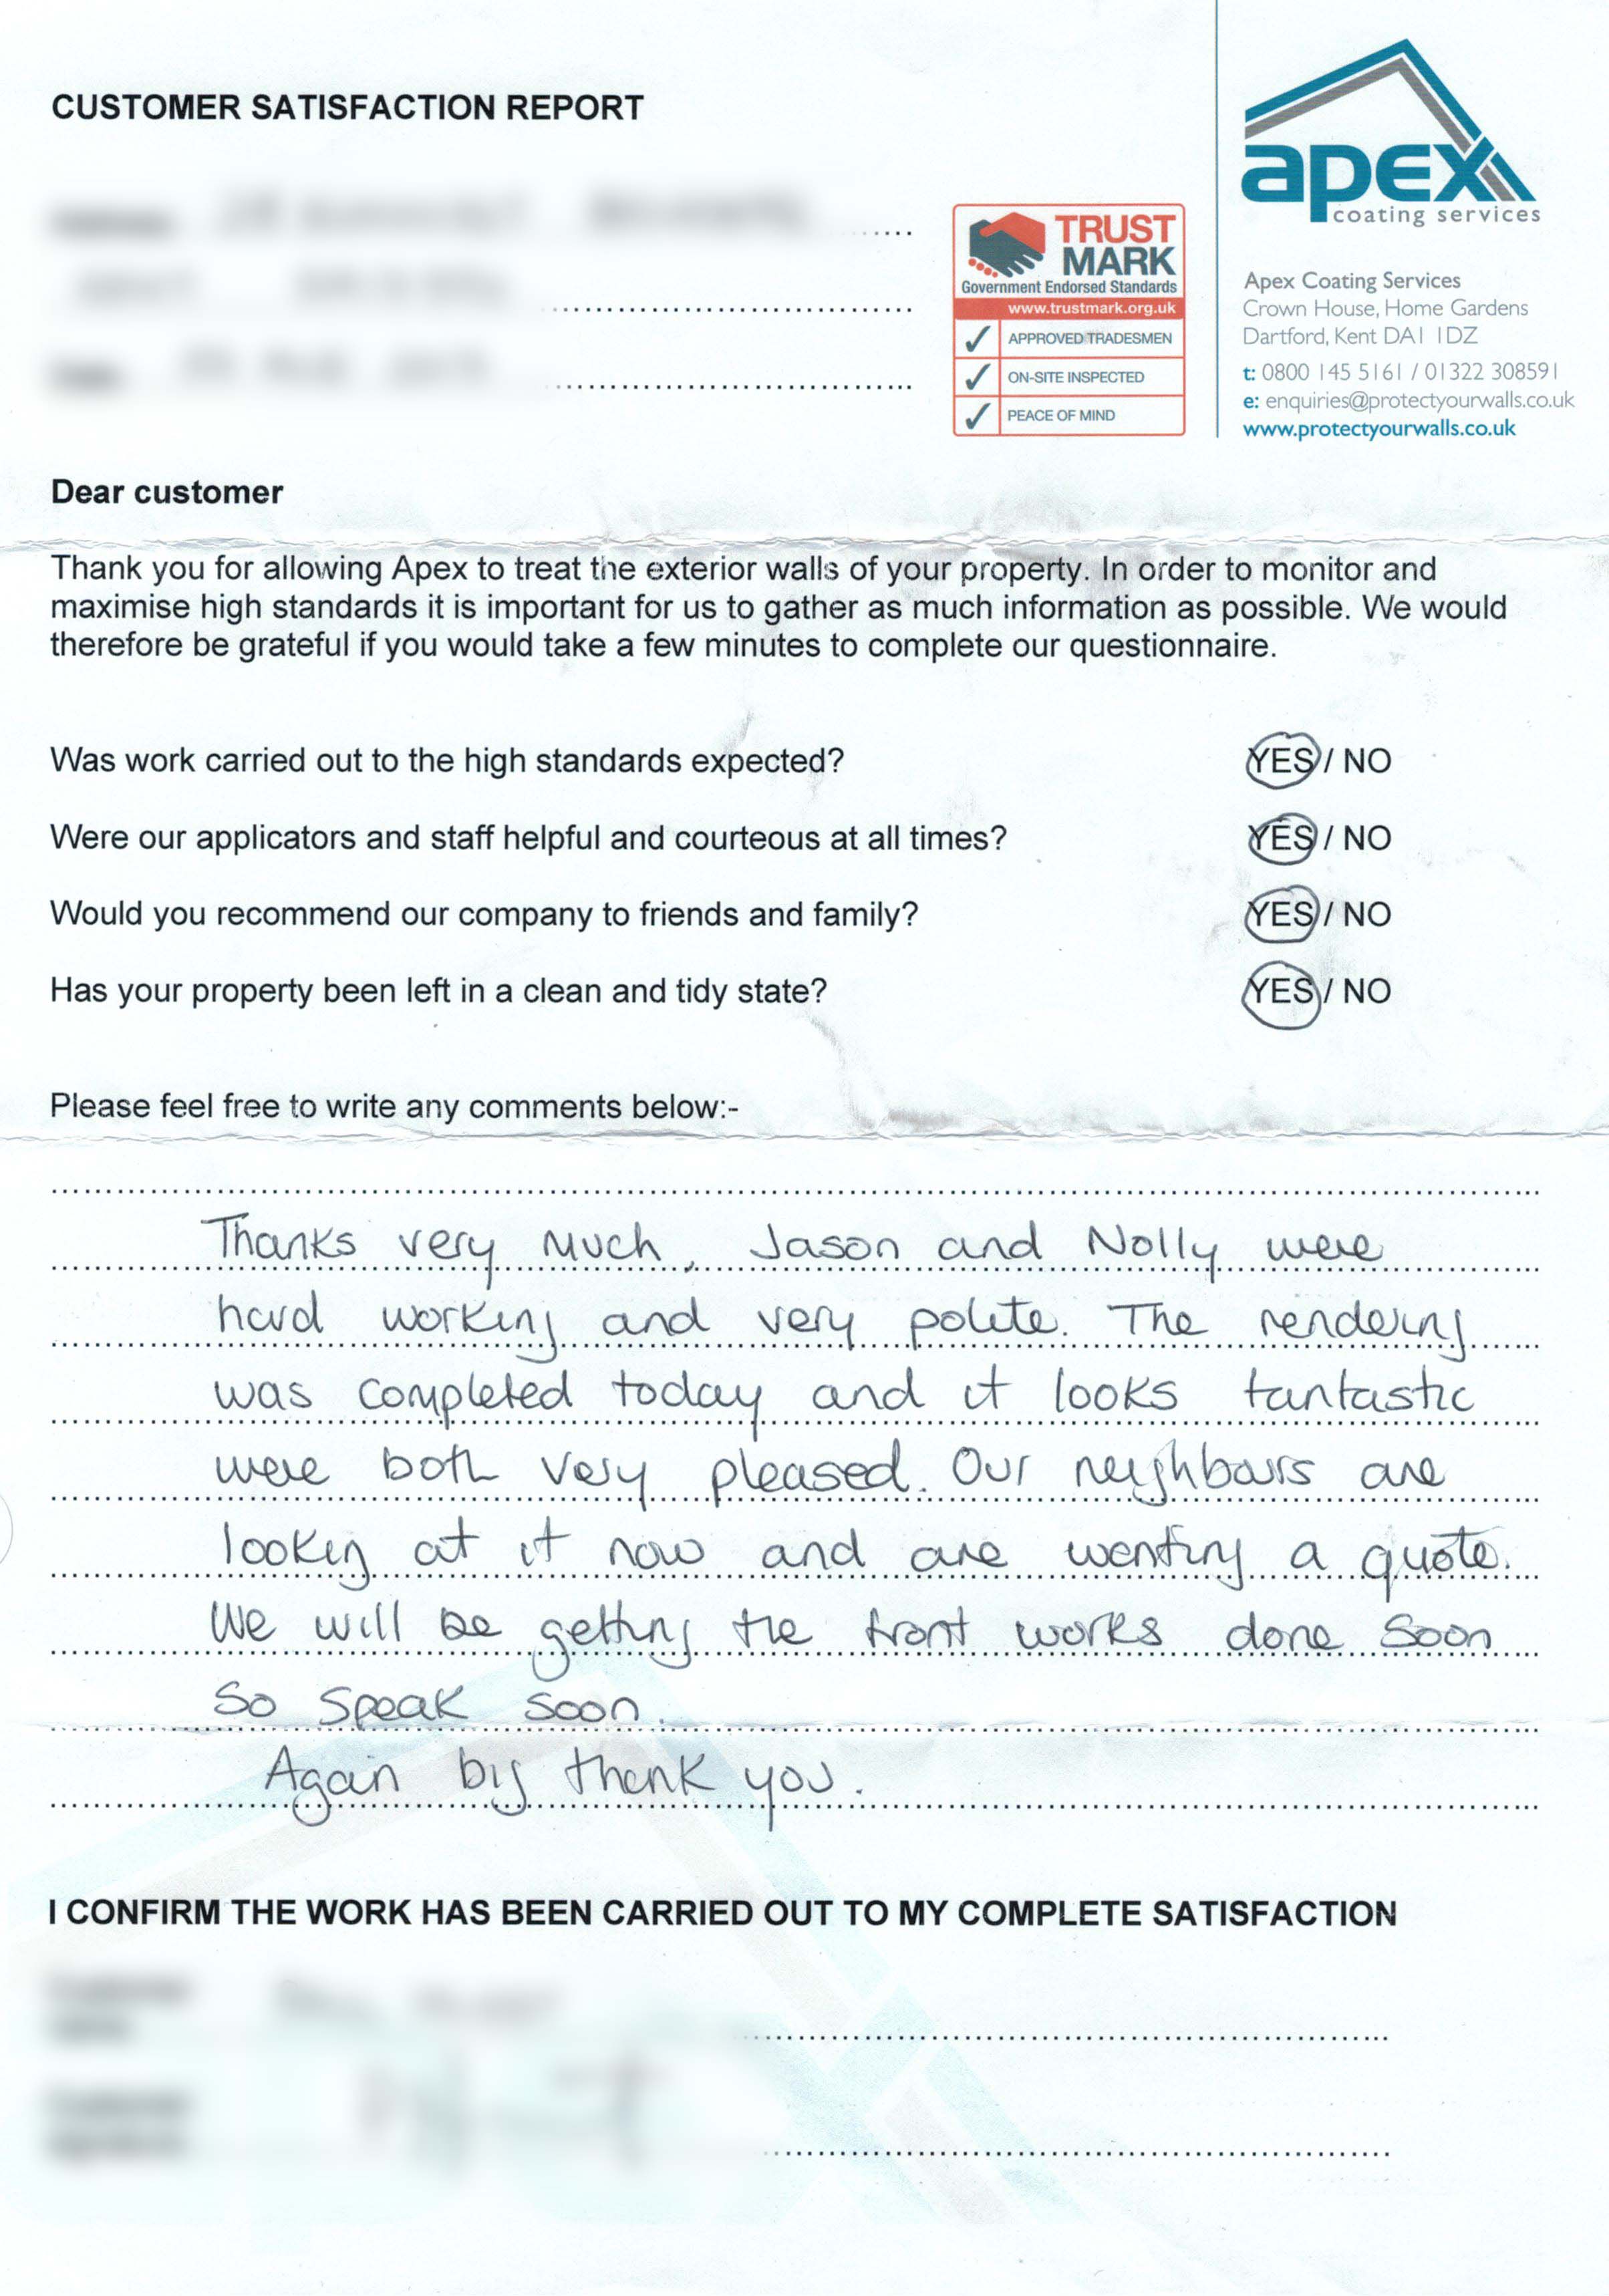 CUSTOMER SATISFACTION REPORT
apex
coating services
TRUST
MARK
Government Endorsed Standards
www.trustmark.org.uk
APPROVED TRADESMEN
ON-SITE INSPECTED
PEACE OF MIND
Apex Coating Services
Crown House, Home Gardens
Dartford, Kent DA1 1DZ
t: 0800 145 5161 / 01322 308591
e: enquiries@protectyourwalls.co.uk
www.protectyourwalls.co.uk
Dear customer
Thank you for allowing Apex to treat the exterior walls of your property. In order to monitor and
maximise high standards it is important for us to gather as much information as possible. We would
therefore be grateful if you would take a few minutes to complete our questionnaire.
Was work carried out to the high standards expected? YES / NO
Were our applicators and staff helpful and courteous at all times? YES / NO
Would you recommend our company to friends and family? YES / NO
Has your property been left in a clean and tidy state? YES / NO
Please feel free to write any comments below:-
Thanks very much, Jason and Nolly were
hard working and very polite. The rendering
was completed today and it looks fantastic
were both very pleased. Our neighbours are
looking at it now and are wanting a quote.
We will be getting the front works done soon
So speak soon.
Again big thank you.
I CONFIRM THE WORK HAS BEEN CARRIED OUT TO MY COMPLETE SATISFACTION